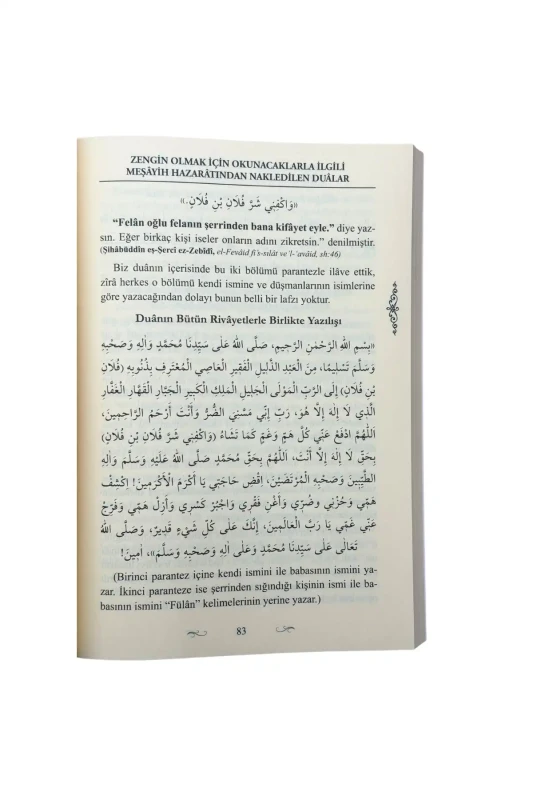 ZENGİN OLMAK İÇİN OKUNACAKLARLA İLGİLİ
MEŞÂYİH HAZARÂTINDAN NAKLEDİLEN DUÂLAR
«وَاكْفِنِي شَرَّ فُلَانِ بْنِ فُلَانٍ.»
“Felân oğlu felanın şerrinden bana kifâyet eyle.” diye yaz-
sın. Eğer birkaç kişi iseler onların adını zikretsin.” denilmiştir.
(Şihâbüddîn eş-Şercî ez-Zebîdî, el-Fevâid fi’s-sılât ve ’l-‘avâid, sh:46)
Biz duânın içerisinde bu iki bölümü parantezle ilâve ettik,
zîrâ herkes o bölümü kendi ismine ve düşmanlarının isimlerine
göre yazacağından dolayı bunun belli bir lafzı yoktur.
Duânın Bütün Rivâyetlerle Birlikte Yazılışı
«بِسْمِ اللهِ الرَّحْمٰنِ الرَّحِيمِ، صَلَّى اللهُ عَلَى سَيِّدِنَا مُحَمَّدٍ وَاٰلِهِ وَصَحْبِهِ
وَسَلَّمَ تَسْلِيمًا، مِنَ الْعَبْدِ الذَّلِيلِ الْفَقِيرِ الْعَاصِي الْمُعْتَرِفِ بِذُنُوبِهِ (فُلَانِ
بْنِ فُلَانٍ) إِلَى الرَّبِّ الْمَوْلَى الْجَلِيلِ الْمَلِكِ الْكَبِيرِ الْجَبَّارِ الْقَهَّارِ الْغَفَّارِ
الَّذِي لَا إِلٰهَ إِلَّا هُوَ، رَبِّ إِنِّي مَسَّنِيَ الضُّرُّ وَأَنْتَ أَرْحَمُ الرَّاحِمِينَ،
اَللّٰهُمَّ ادْفَعْ عَنِّي كُلَّ هَمٍّ وَغَمٍّ كَمَا تَشَاءُ (وَاكْفِنِي شَرَّ فُلَانِ بْنِ فُلَانٍ)
بِحَقِّ لَا إِلٰهَ إِلَّا أَنْتَ، اَللّٰهُمَّ بِحَقِّ مُحَمَّدٍ صَلَّى اللهُ عَلَيْهِ وَسَلَّمَ وَاٰلِهِ
الطَّيِّبِينَ وَصَحْبِهِ الْمُرْتَضَيْنَ، اِقْضِ حَاجَتِي يَا أَكْرَمَ الْأَكْرَمِينَ! اِكْشِفْ
هَمِّي وَحُزْنِي وَضُرِّي وَأَغْنِ فَقْرِي وَاجْبُرْ كَسْرِي وَأَزِلْ هَمِّي وَفَرِّجْ
عَنِّي غَمِّي يَا رَبَّ الْعَالَمِينَ، إِنَّكَ عَلَى كُلِّ شَيْءٍ قَدِيرٌ، وَصَلَّى اللهُ
تَعَالَى عَلَى سَيِّدِنَا مُحَمَّدٍ وَعَلَى اٰلِهِ وَصَحْبِهِ وَسَلَّمَ»، اٰمِينَ!
(Birinci parantez içine kendi ismini ile babasının ismini ya-
zar. İkinci paranteze ise şerrinden sığındığı kişinin ismi ile ba-
basının ismini “Fülân” kelimelerinin yerine yazar.)
83